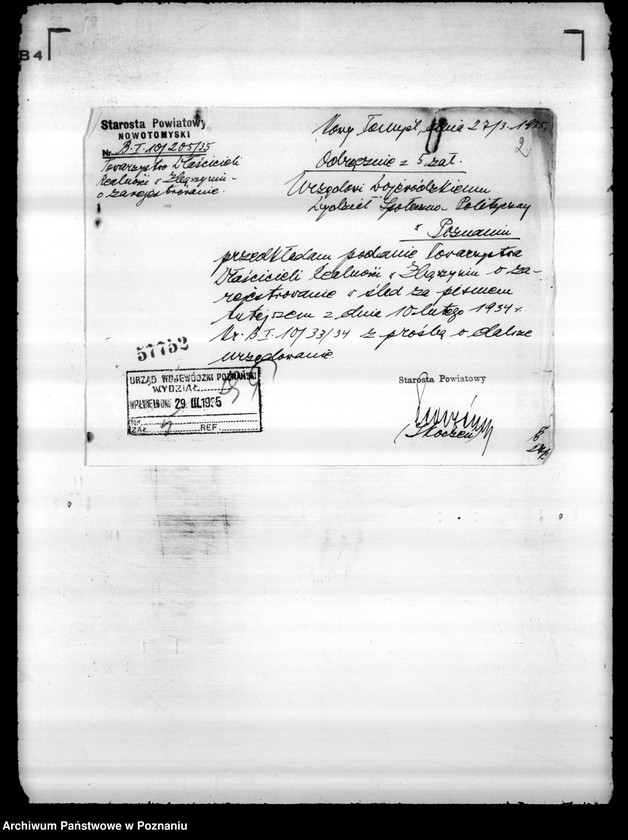 84
Starosta Powiatowy
NOWOTOMYSKI
Nr. B.I.10/205/35
Towarzystwo Właścicieli
Realności w Zbąszyniu -
o zarejestrowanie.
Nowy Tomyśl, dnia 27/3. 1935.
2
Odręcznie z 5 zał.
Urzędowi Wojewódzkiemu
Wydział Społeczno-Polityczny
w Poznaniu
przedkładam podanie Towarzystwa
Właścicieli Realności w Zbąszyniu o za-
rejestrowanie w ślad za pismem
tutejszem z dnia 10 lutego 1934 r.
Nr. B.I.10/33/34 z prośbą o dalsze
urzędowanie
57752
URZĄD WOJEWÓDZKI POZNAŃSKI
WYDZIAŁ
WPŁYNĘŁO DNIA 29 III. 1935
Nr.
ZAŁ. REF.
Starosta Powiatowy
Archiwum Państwowe w Poznaniu